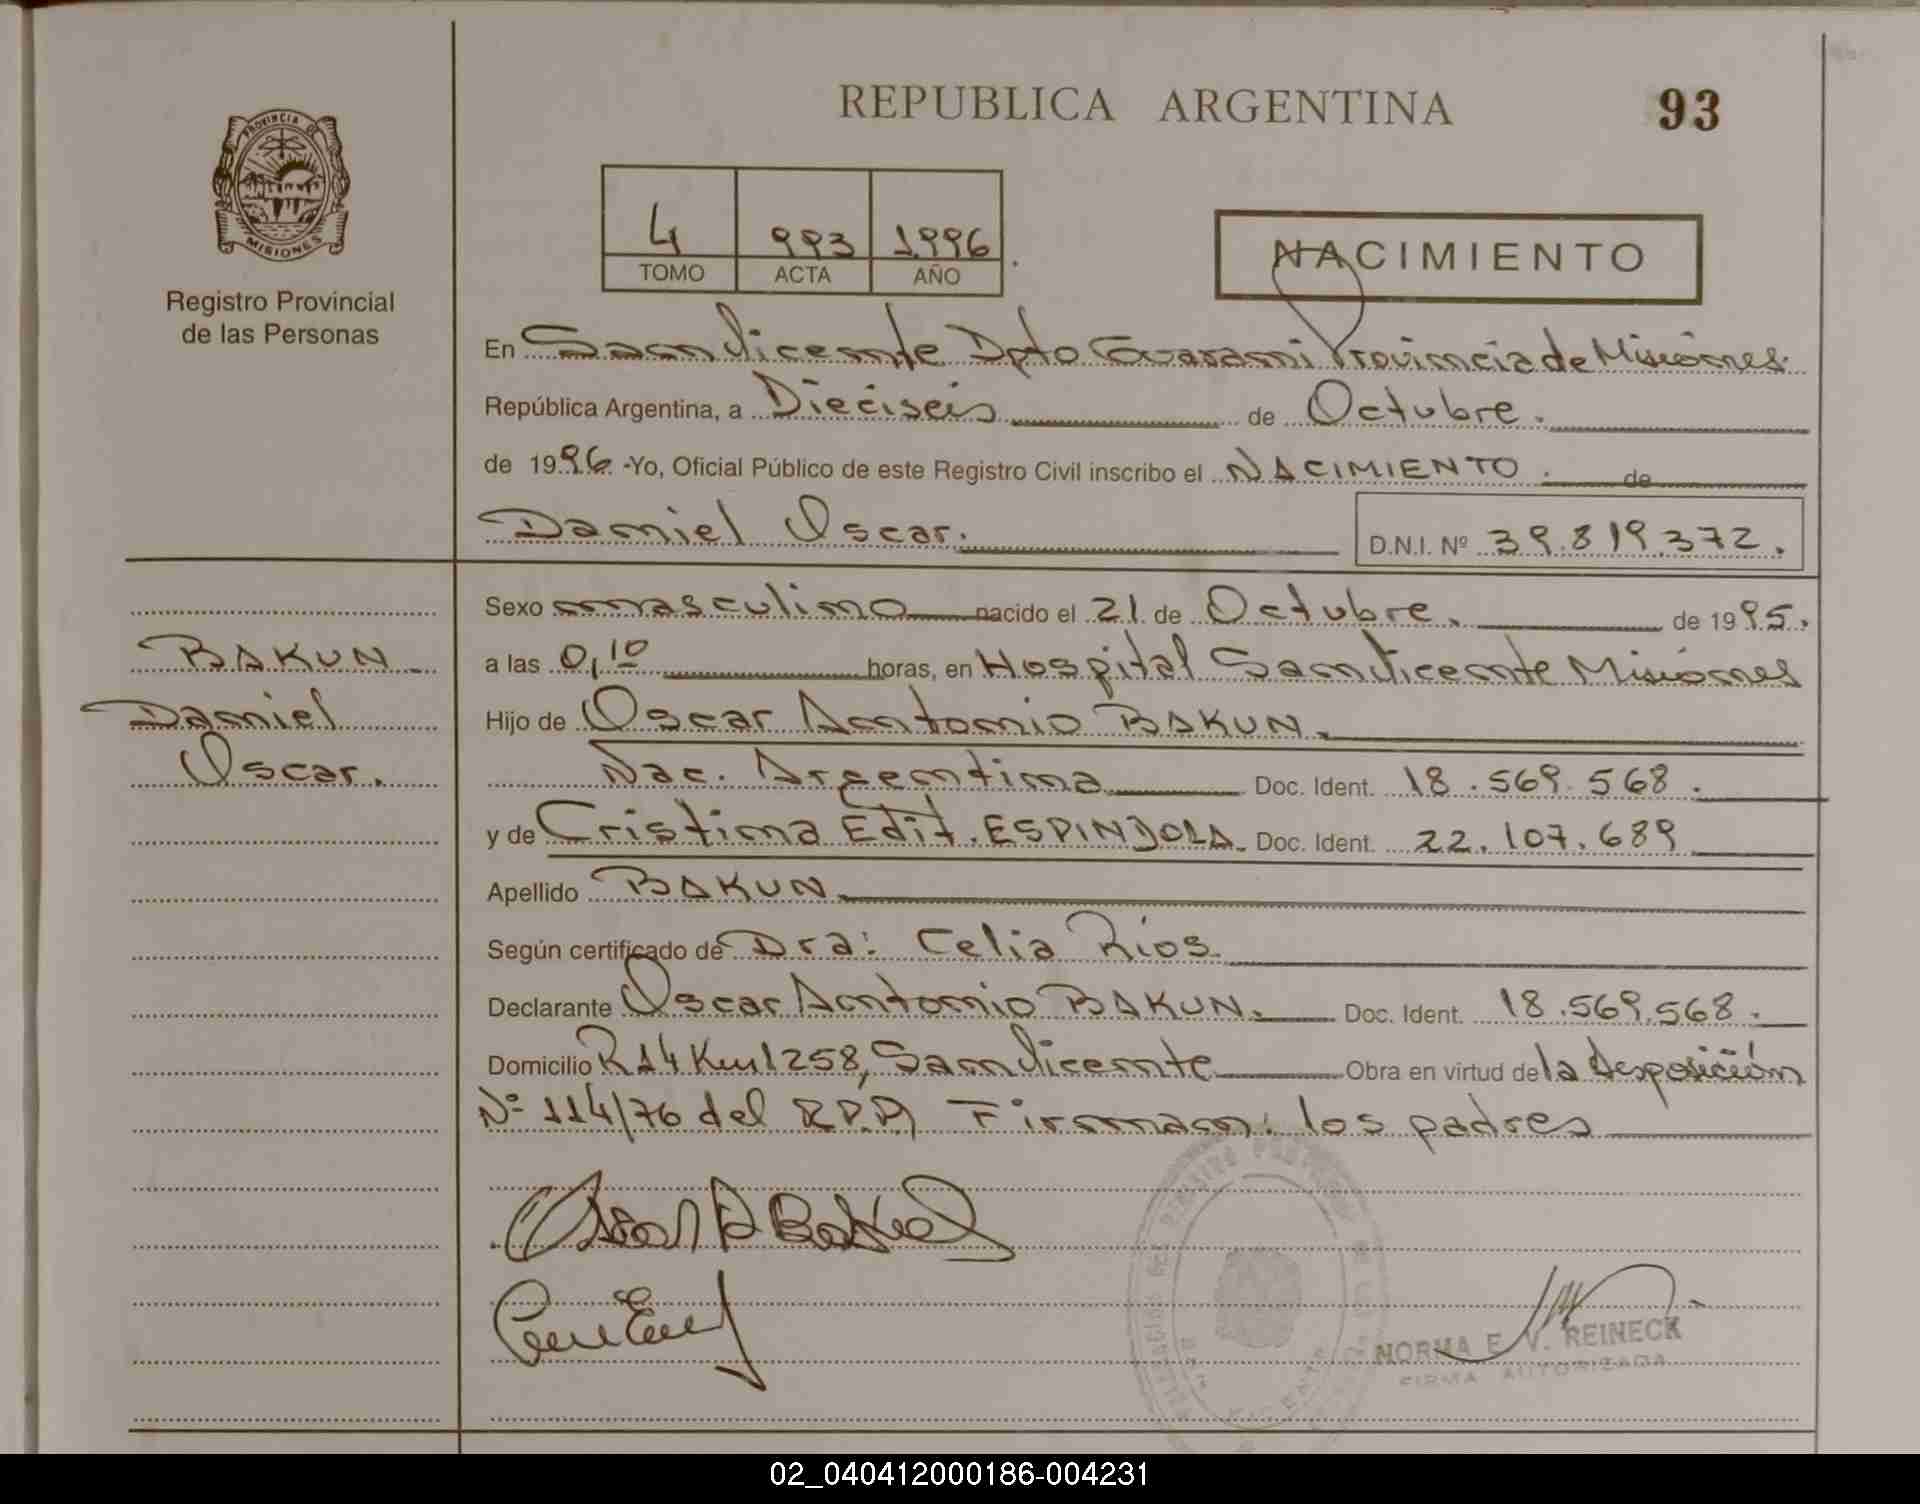 REPUBLICA ARGENTINA
93
PROVINCIA DE
MISIONES
Registro Provincial
de las Personas
4 993 1996
TOMO ACTA AÑO
NACIMIENTO
En San Vicente Dpto Guarani Provincia de Misiones
República Argentina, a Dieciseis de Octubre.
de 1996 -Yo, Oficial Público de este Registro Civil inscribo el NACIMIENTO. de
Daniel Oscar.
D.N.I. Nº 39.819.372.
Sexo masculino nacido el 21 de Octubre. de 1995.
BAKUN
a las 0,10 horas, en Hospital San Vicente Misiones
Daniel
Hijo de Oscar Antonio BAKUN.
Oscar.
Nac. Argentina Doc. Ident. 18.569.568.
y de Cristina Edit. ESPINDOLA. Doc. Ident. 22.107.689
Apellido BAKUN
Según certificado de Dra: Celia Rios.
Declarante Oscar Antonio BAKUN. Doc. Ident. 18.569.568.
Domicilio R14 Km 1258, San Vicente Obra en virtud de la Disposición
Nº 114/76 del R.P.P, Firman: los padres
NORMA E. V. REINECK
FIRMA AUTORIZADA
02_040412000186-004231